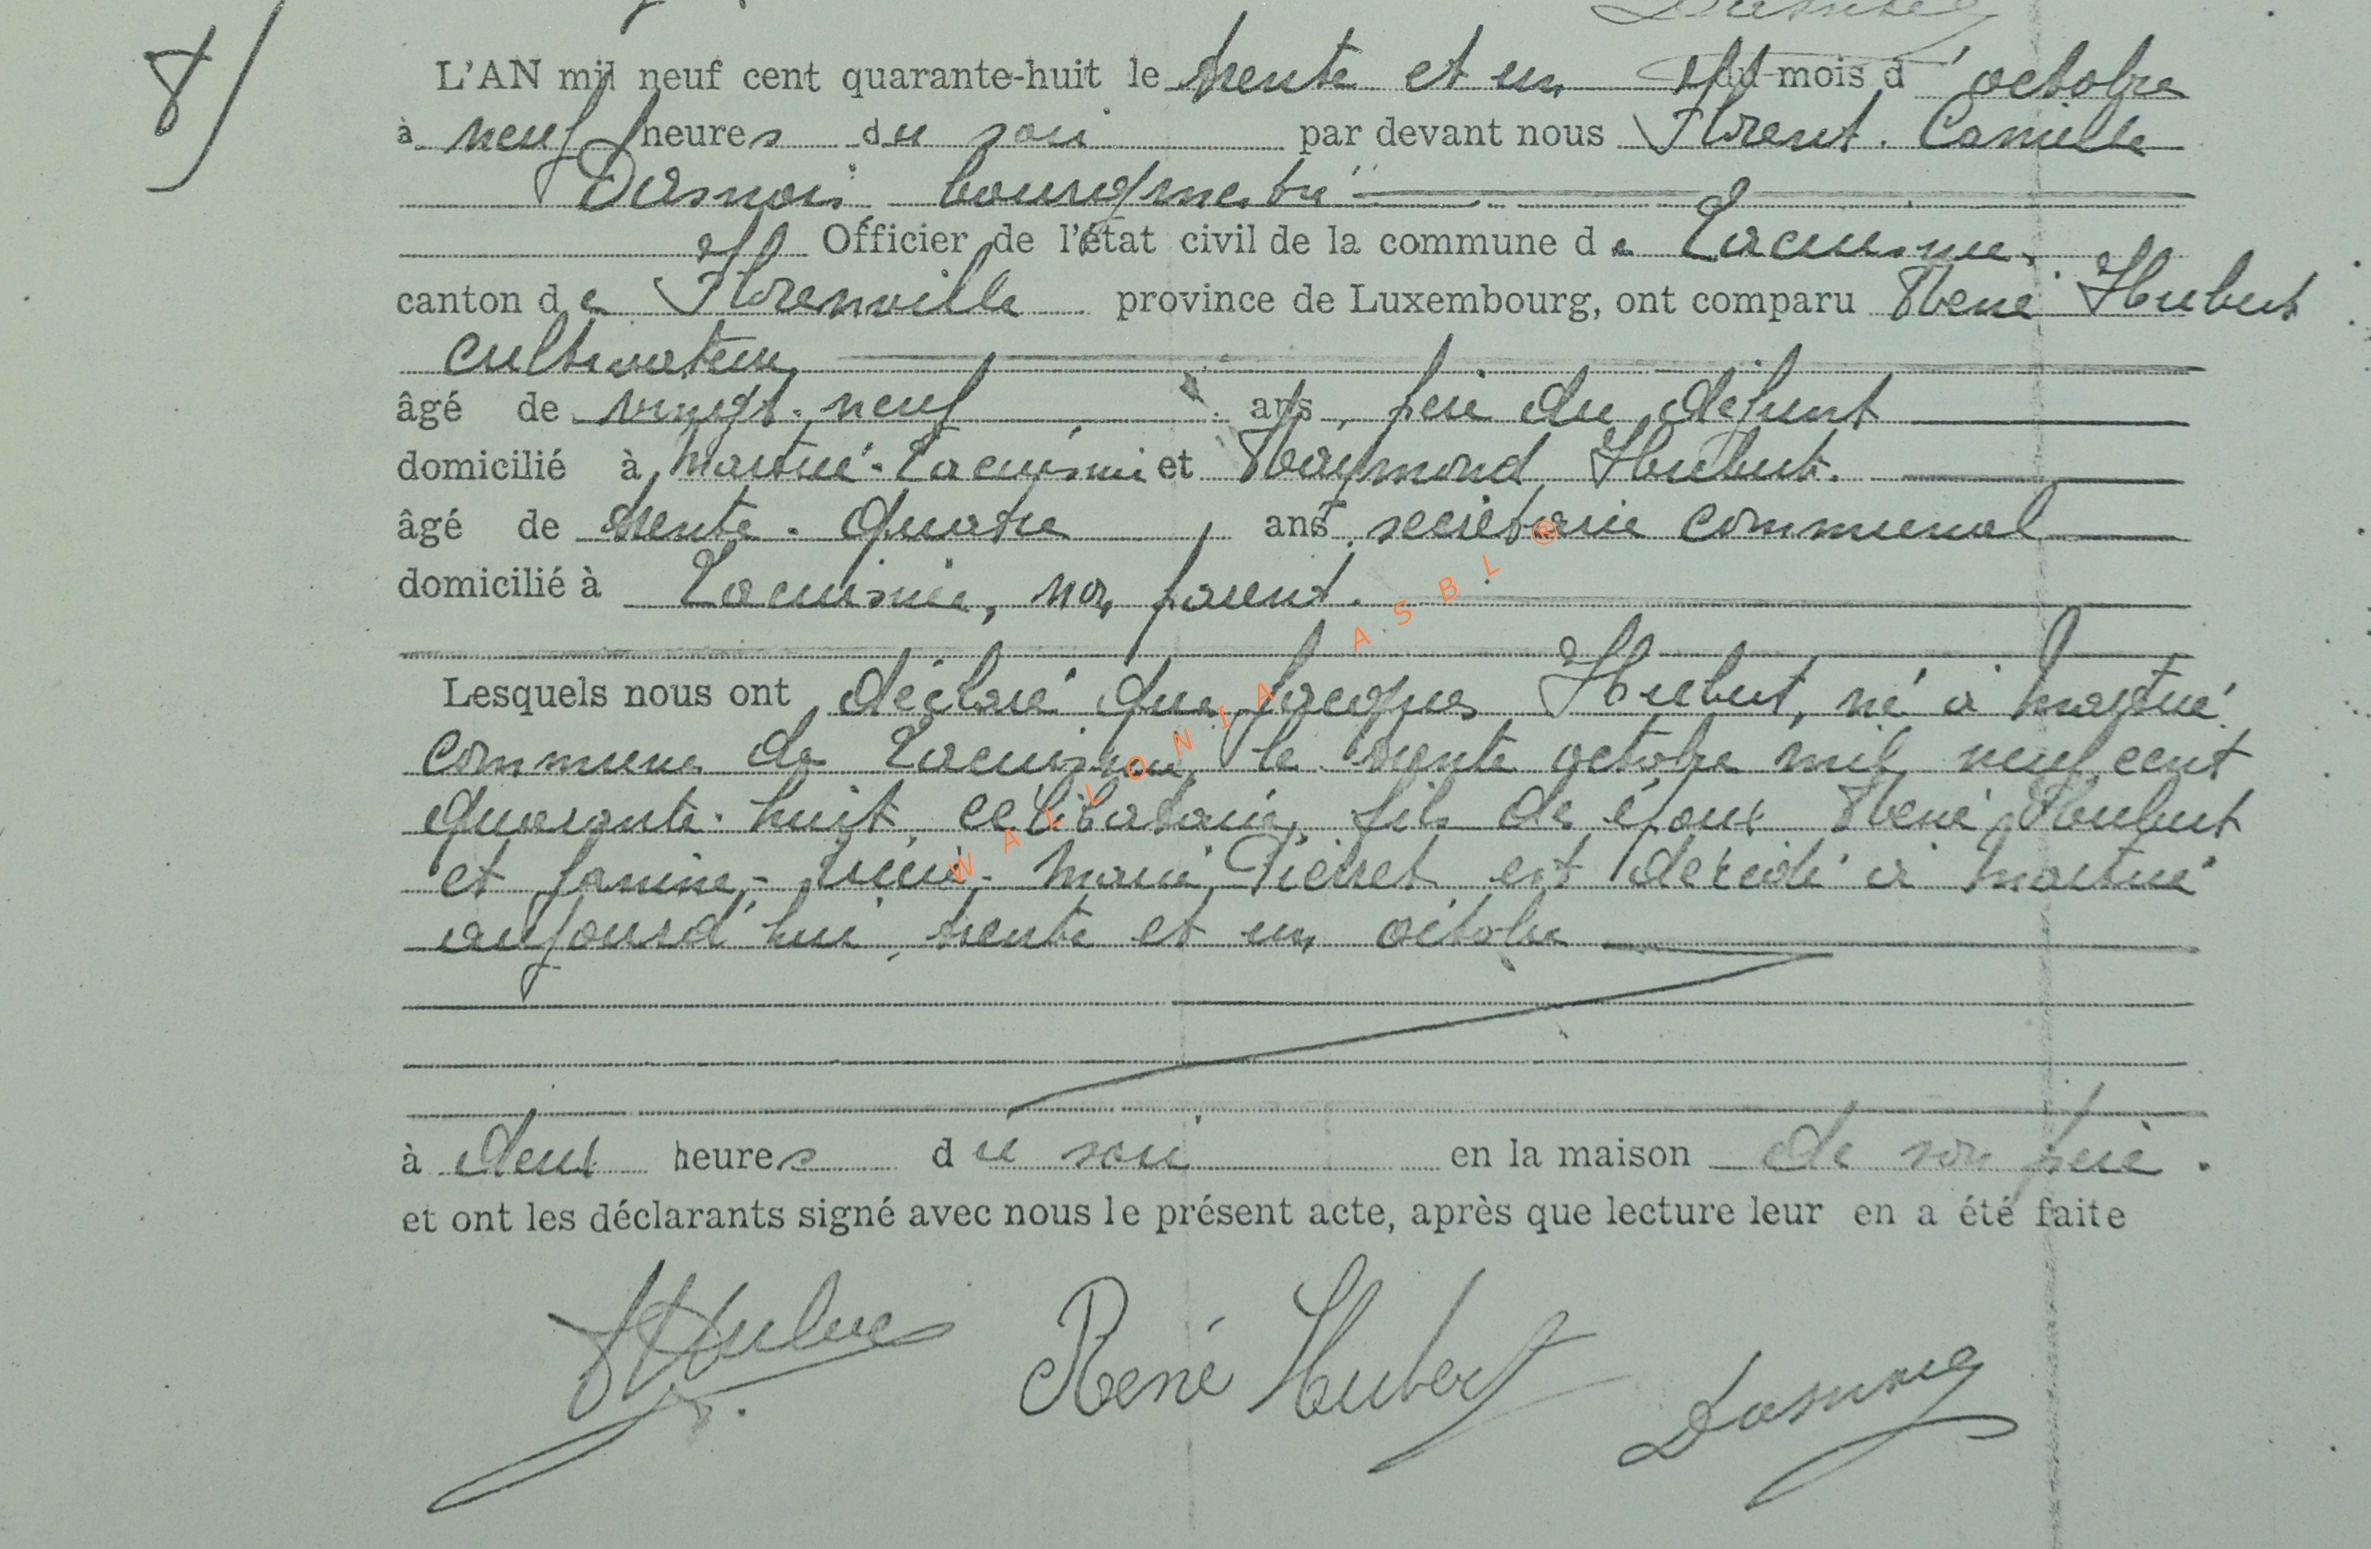 8/
L'AN mil neuf cent quarante-huit le trente et un du mois d'octobre
à neuf heures du soir par devant nous Florent. Camille
Dasnois bourgmestre
Officier de l'état civil de la commune de Lacuisine,
canton de Florenville province de Luxembourg, ont comparu René Hubert
cultivateur
âgé de vingt-neuf ans, père du défunt
domicilié à Martué-Lacuisine et Raymond Hubert.
âgé de trente-quatre, ans secrétaire communal
domicilié à Lacuisine, non parent.
Lesquels nous ont déclaré que Jacques Hubert, né à Martué
commune de Lacuisine, le trente octobre mil neuf cent
quarante-huit, célibataire, fils de époux René Hubert
et Janine,- - Marie Pierret est décédé à Martué
aujourd'hui, trente et un octobre
à deux heures du soir en la maison de son père.
et ont les déclarants signé avec nous le présent acte, après que lecture leur en a été faite
René Hubert
WALLONIA ASBL ®